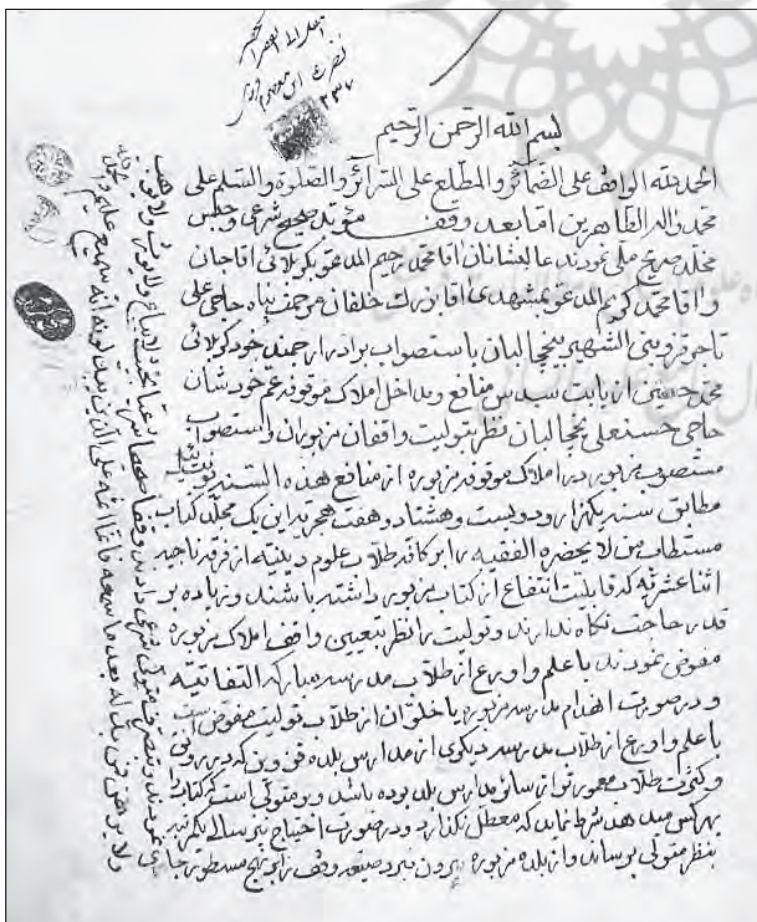 بسم الله الرحمن الرحیم
الحمد لله الواقف علی الضمائر و المطلع علی السرائر و الصلوة و السلم علی
محمد و اله الطاهرین اما بعد وقف مؤبد صحیح شرعی و حبس
مخلد صریح ملی نمودند عالیشانان اقا محمد رحیم المدعو بکربلائی اقاجان
و اقا محمد کریم المدعو بمشهدی اقا بزرك خلفان مرحمت پناه حاجی علی
تاجر قزوینی الشهیر بیخچالیان باستصواب برادر ارجمند خود کربلائی
محمد حسین از بابت سدس منافع و مداخل املاک موقوفه عم خودشان
حاجی حسنعلی یخچالیان نظر بتولیت واقفان مزبوران و استصواب
مستصوب مزبور در املاک موقوفه مزبوره از منافع هذه السنه
مطابق سنه یکهزار و دویست و هشتاد و هفت هجریه این یک مجلد کتاب
مستطاب من لا یحضره الفقیه را بر کافه طلاب علوم دینیه از فرقه ناجیه
اثنا عشریه که قابلیت انتفاع از کتاب مزبور داشته باشند و زیاده بر
قدر حاجت نگاه ندارند و تولیت را نظر بتعیین واقف املاک مزبوره
مفوض نمودند باعلم و اورع از طلاب مدرسه مبارکه التفاتیه
و در صورت انهدام مدرسه مزبوره یا خلو ان از طلاب تولیت مفوض است
باعلم و اورع از طلاب مدرسه دیکری از مدارس بلده قزوین که در رونق
و کثرت طلاب معمورتر از سائر مدارس بلد بوده باشد و بر متولی است که کتاب را
بهرکس میدهد شرط نماید که معطل نگذارد و در صورت احتیاج هر ساله یکمرتبه
بنظر متولی برساند و از بلده مزبوره بیرون نبرد و صیغه وقف را بر نهج مسطور جاری
نمودند و بتصرف متولی شرعی دادند وقفا صحیحا شرعیا بحیث لا یباع و لا یورث و لا یوهب
و لا یرهن فمن بدله بعد ما سمعه فانما اثمه علی الذین یبدلونه انه سمیع علیم